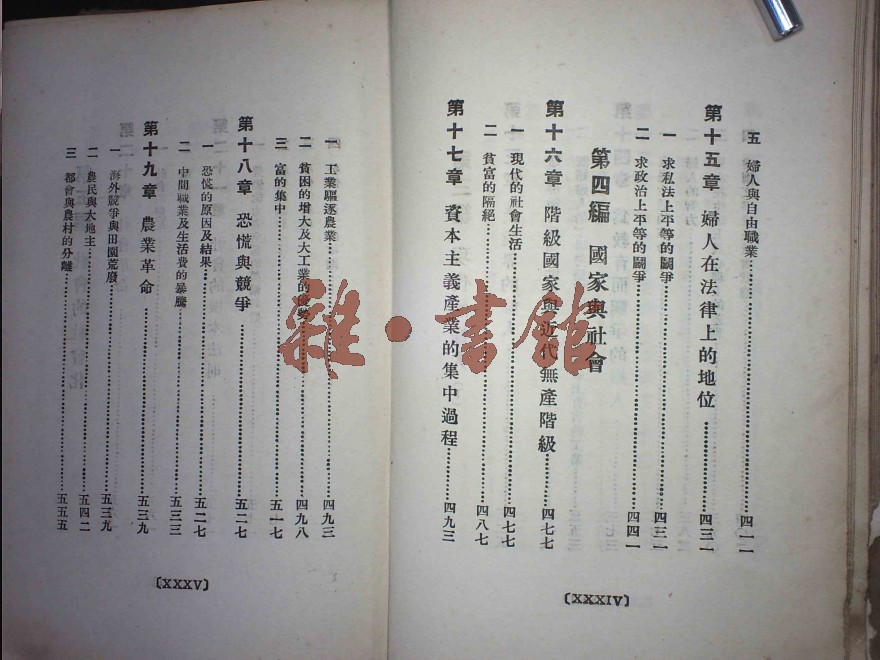 五 婦人與自由職業……四一一
第十五章 婦人在法律上的地位……四三一
一 求私法上平等的鬭爭……四三一
二 求政治上平等的鬭爭……四四一
第四編 國家與社會
第十六章 階級國家與近代無產階級……四七七
一 現代的社會生活……四七七
二 貧富的隔絕……四八七
第十七章 資本主義產業的集中過程……四九三
〔XXXIV〕
一 工業驅逐農業……四九三
二 貧困的增大及大工業的優勢……四九八
三 富的集中……五一七
第十八章 恐慌與競爭……五二七
一 恐慌的原因及結果……五二七
二 中間職業及生活費的暴騰……五三三
第十九章 農業革命……五三九
一 海外競爭與田園荒廢……五三九
二 農民與大地主……五四二
三 都會與農村的分離……五五五
〔XXXV〕
雜·書館